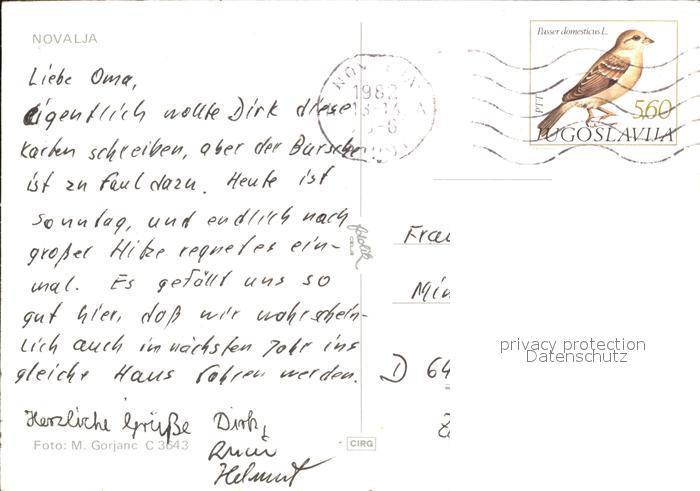 NOVALJA
Liebe Oma,
eigentlich wollte Dirk diese
Karten schreiben, aber der Bursche
ist zu faul dazu. Heute ist
Sonntag, und endlich nach
großer Hitze regnet es ein-
mal. Es gefällt uns so
gut hier, daß wir wahrschein-
lich auch im nächsten Jahr ins
gleiche Haus fahren werden.
Herzliche Grüße Dirk,
Helmut
Foto: M. Gorjanc C 3643
CIRG
1982
Passer domesticus L.
PTT
5.60
JUGOSLAVIJA
Frau
D 64
privacy protection
Datenschutz